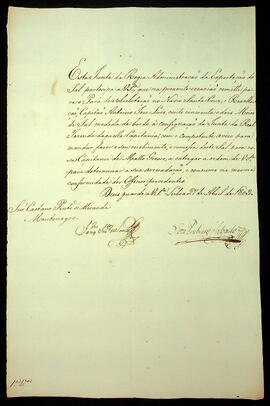 Esta Junta da Regia Administração da Exportação do
Sal participa a VS.ª que na presente occasião remette pa-
ra o Pará de se na Nova Santa Cruz, e
Capitão Antonio Jozé cento cincoenta e dois Moios
de Sal medida de bordo, á consignação da Junta da Real
Fazenda daquella Capitania; com o competente avizo para
mandar fazer o seu recebimento, e remessa deste Sal para es-
sa Capitania de Matto Grosso, e entregar á ordem de VS.ª
para determinar a sua arrecadação, e consumo na mesma
conformidade dos Officios precedentes.
Deos guarde a VS.ª Lisboa de Abril de
Snr Caetano Pinto de Miranda
Montenegro